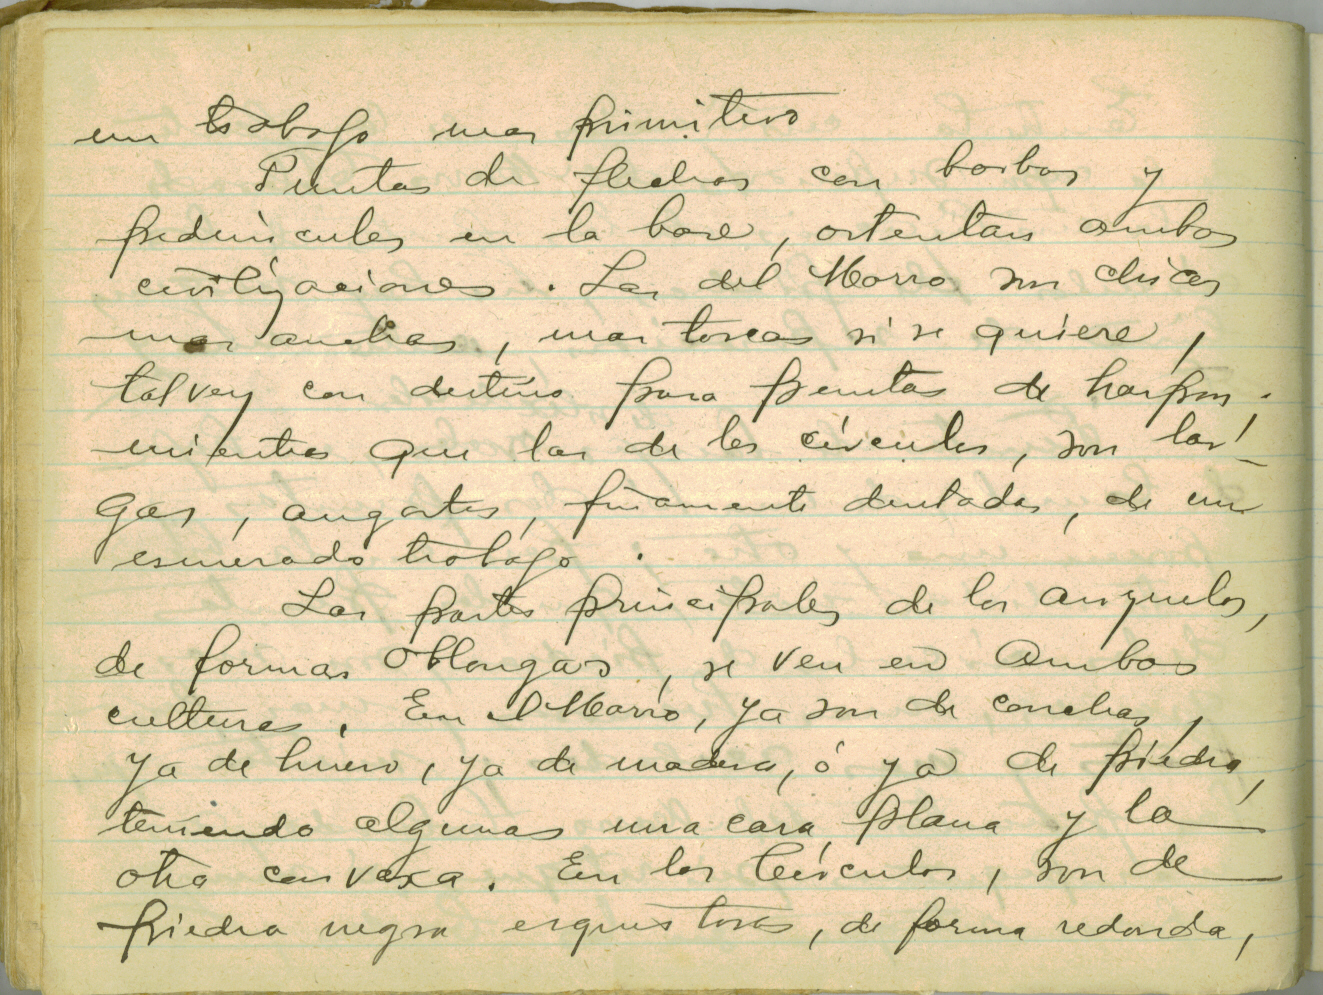 un trabajo mas primitivo
Puntas de flechas con barbas y
pedúnculos en la base, ostentan ambas
civilizaciones. Las del Morro son chicas
mas anchas, mas toscas si se quiere,
talvez con destino para puntas de harpon.
mientras que las de los círculos, son lar-
gas, angostas, finamente dentadas, de un
esmerado trabajo.
Las partes principales de los anzuelos,
de formas oblongas, se ven en ambas
culturas. En el Morro, ya son de conchas,
ya de hueso, ya de madera, ó ya de piedra,
teniendo algunas una cara plana y la
otra convexa. En los Círculos, son de
piedra negra esquistosa, de forma redonda,